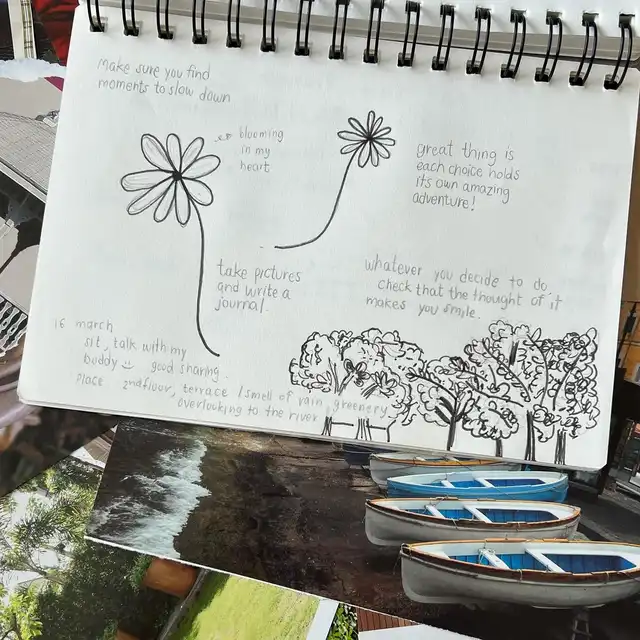 make sure you find
moments to slow down
blooming
in my
heart
great thing is
each choice holds
its own amazing
adventure!
take pictures
and write a
journal.
whatever you decide to do,
check that the thought of it
makes you smile.
16 march
sit, talk with my
buddy good sharing.
place 2nd floor, terrace / smell of rain, greenery
overlooking to the river